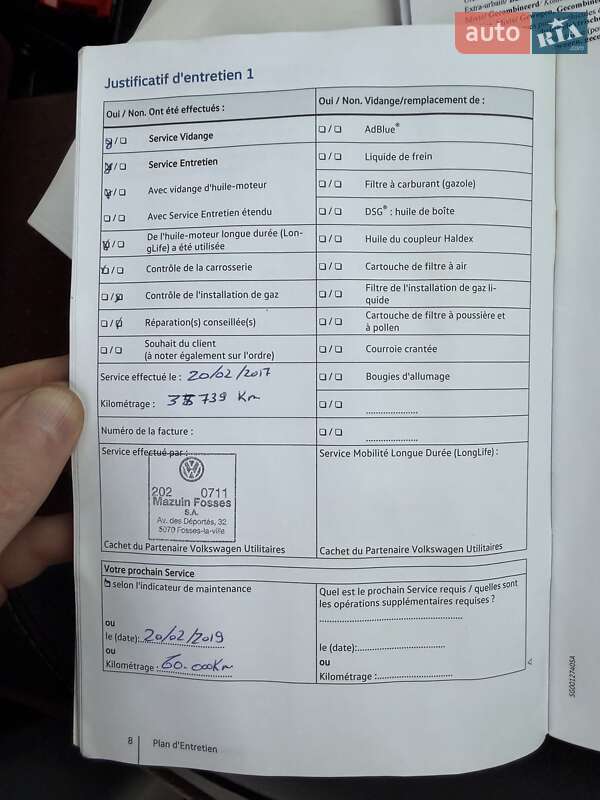 auto RIA .com
Extra-urbain/
Justificatif d'entretien 1
Oui / Non. Ont été effectués :
Oui / Non. Vidange/remplacement de :
Service Vidange
AdBlue®
Service Entretien
Liquide de frein
Avec vidange d'huile-moteur
Filtre à carburant (gazole)
Avec Service Entretien étendu
DSG® : huile de boîte
De l'huile-moteur longue durée (Lon-
gLife) a été utilisée
Huile du coupleur Haldex
Contrôle de la carrosserie
Cartouche de filtre à air
Contrôle de l'installation de gaz
Filtre de l'installation de gaz li-
quide
Réparation(s) conseillée(s)
Cartouche de filtre à poussière et
à pollen
Souhait du client
(à noter également sur l'ordre)
Courroie crantée
Service effectué le : 20/02/2017
Bougies d'allumage
Kilométrage : 739 Km
Numéro de la facture :
Service effectué par :
Service Mobilité Longue Durée (LongLife) :
202 0711
Mazuin Fosses
S.A.
Av. des Déportés, 32
5070 Fosses-la-ville
Cachet du Partenaire Volkswagen Utilitaires
Cachet du Partenaire Volkswagen Utilitaires
Votre prochain Service
selon l'indicateur de maintenance
Quel est le prochain Service requis / quelles sont
les opérations supplémentaires requises ?
ou
le (date): 20/02/2019
le (date):
ou
ou
Kilométrage : 60.000Km
Kilométrage :
SG0012740SA
8 Plan d'Entretien